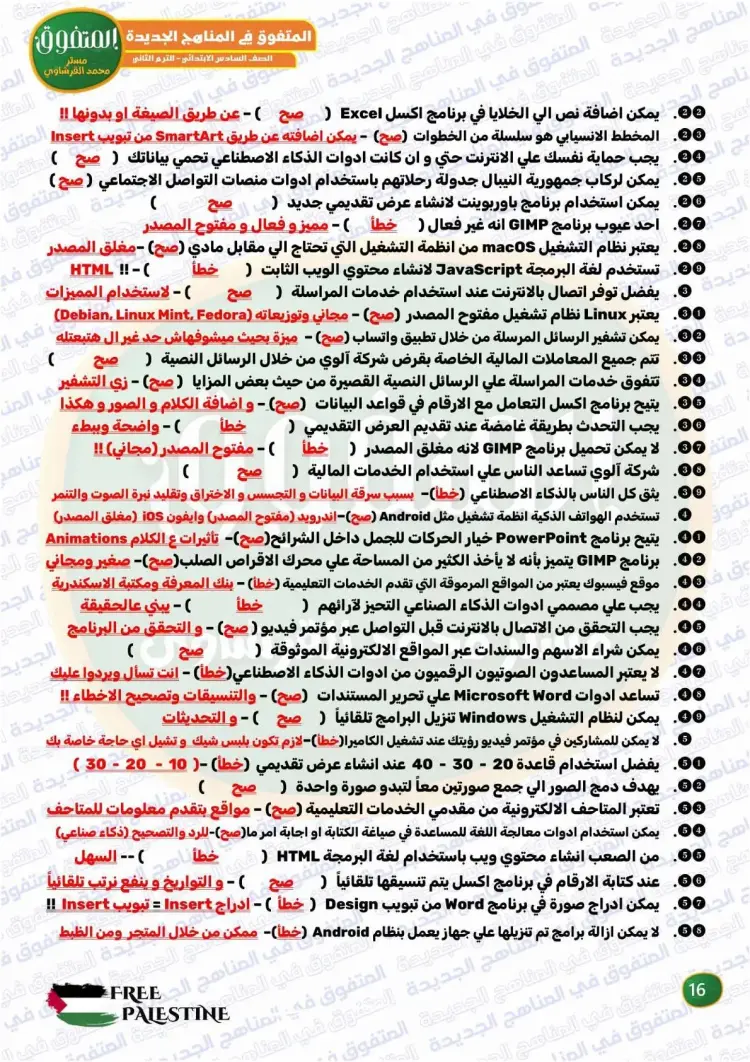 المتفوق في المناهج الجديدة
الصف السادس الابتدائي - الترم الثاني
المتفوق
مستر
محمد القرشاوي
22. يمكن اضافة نص الي الخلايا في برنامج اكسل Excel ( صح ) - عن طريق الصيغة او بدونها !!
23. المخطط الانسيابي هو سلسلة من الخطوات (صح) - يمكن اضافته عن طريق SmartArt من تبويب Insert
24. يجب حماية نفسك علي الانترنت حتي و ان كانت ادوات الذكاء الاصطناعي تحمي بياناتك ( صح )
25. يمكن لركاب جمهورية النيبال جدولة رحلاتهم باستخدام ادوات منصات التواصل الاجتماعي ( صح )
26. يمكن استخدام برنامج باوربوينت لانشاء عرض تقديمي جديد ( صح )
27. احد عيوب برنامج GIMP انه غير فعال ( خطأ ) - مميز و فعال و مفتوح المصدر
28. يعتبر نظام التشغيل macOS من انظمة التشغيل التي تحتاج الي مقابل مادي (صح) -مغلق المصدر
29. تستخدم لغة البرمجة JavaScript لانشاء محتوي الويب الثابت ( خطأ ) - !! HTML
3. يفضل توفر اتصال بالانترنت عند استخدام خدمات المراسلة ( صح ) - لاستخدام المميزات
31. يعتبر Linux نظام تشغيل مفتوح المصدر (صح) - مجاني وتوزيعاته (Debian, Linux Mint, Fedora)
32. يمكن تشفير الرسائل المرسلة من خلال تطبيق واتساب (صح) - ميزة بحيث ميشوفهاش حد غير ال هتبعتله
33. تتم جميع المعاملات المالية الخاصة بقرض شركة آلوي من خلال الرسائل النصية ( صح )
34. تتفوق خدمات المراسلة علي الرسائل النصية القصيرة من حيث بعض المزايا ( صح) - زي التشفير
35. يتيح برنامج اكسل التعامل مع الارقام في قواعد البيانات (صح) - و اضافة الكلام و الصور و هكذا
36. يجب التحدث بطريقة غامضة عند تقديم العرض التقديمي ( خطأ ) - واضحة وببطء
37. لا يمكن تحميل برنامج GIMP لانه مغلق المصدر ( خطأ ) - مفتوح المصدر (مجاني) !!
38. شركة آلوي تساعد الناس علي استخدام الخدمات المالية ( صح )
39. يثق كل الناس بالذكاء الاصطناعي (خطأ)- بسبب سرقة البيانات و التجسس و الاختراق وتقليد نبرة الصوت والتنمر
4. تستخدم الهواتف الذكية انظمة تشغيل مثل Android (صح)-اندرويد (مفتوح المصدر) وايفون iOS (مغلق المصدر)
41. يتيح برنامج PowerPoint خيار الحركات للجمل داخل الشرائح(صح)- تأثيرات ع الكلام Animations
42. برنامج GIMP يتميز بأنه لا يأخذ الكثير من المساحة علي محرك الاقراص الصلب(صح)- صغير ومجاني
43. موقع فيسبوك يعتبر من المواقع المرموقة التي تقدم الخدمات التعليمية (خطأ) - بنك المعرفة ومكتبة الاسكندرية
44. يجب علي مصممي ادوات الذكاء الصناعي التحيز لآرائهم ( خطأ ) - يبني عالحقيقة
45. يجب التحقق من الاتصال بالانترنت قبل التواصل عبر مؤتمر فيديو ( صح) - و التحقق من البرنامج
46. يمكن شراء الاسهم والسندات عبر المواقع الالكترونية الموثوقة ( صح )
47. لا يعتبر المساعدون الصوتيون الرقميون من ادوات الذكاء الاصطناعي(خطأ) - انت تسأل ويردوا عليك
48. تساعد ادوات Microsoft Word علي تحرير المستندات (صح) - والتنسيقات وتصحيح الاخطاء !!
49. يمكن لنظام التشغيل Windows تنزيل البرامج تلقائياً ( صح ) - و التحديثات
5. لا يمكن للمشاركين في مؤتمر فيديو رؤيتك عند تشغيل الكاميرا(خطأ)-لازم تكون بلبس شيك و تشيل اي حاجة خاصة بك
51. يفضل استخدام قاعدة 20 - 30 - 40 عند انشاء عرض تقديمي (خطأ) -( 10 - 20 - 30 )
52. يهدف دمج الصور الي جمع صورتين معاً لتبدو صورة واحدة ( صح )
53. تعتبر المتاحف الالكترونية من مقدمي الخدمات التعليمية (صح) - مواقع بتقدم معلومات للمتاحف
54. يمكن استخدام ادوات معالجة اللغة للمساعدة في صياغة الكتابة او اجابة امر ما(صح)-للرد والتصحيح (ذكاء صناعي)
55. من الصعب انشاء محتوي ويب باستخدام لغة البرمجة HTML ( خطأ ) -- السهل
56. عند كتابة الارقام في برنامج اكسل يتم تنسيقها تلقائياً ( صح ) - و التواريخ و ينفع نرتب تلقائياً
57. يمكن ادراج صورة في برنامج Word من تبويب Design ( خطأ ) - ادراج Insert = تبويب Insert !!
58. لا يمكن ازالة برامج تم تنزيلها علي جهاز يعمل بنظام Android (خطأ)- ممكن من خلال المتجر ومن الظبط
FREE
PALESTINE
16